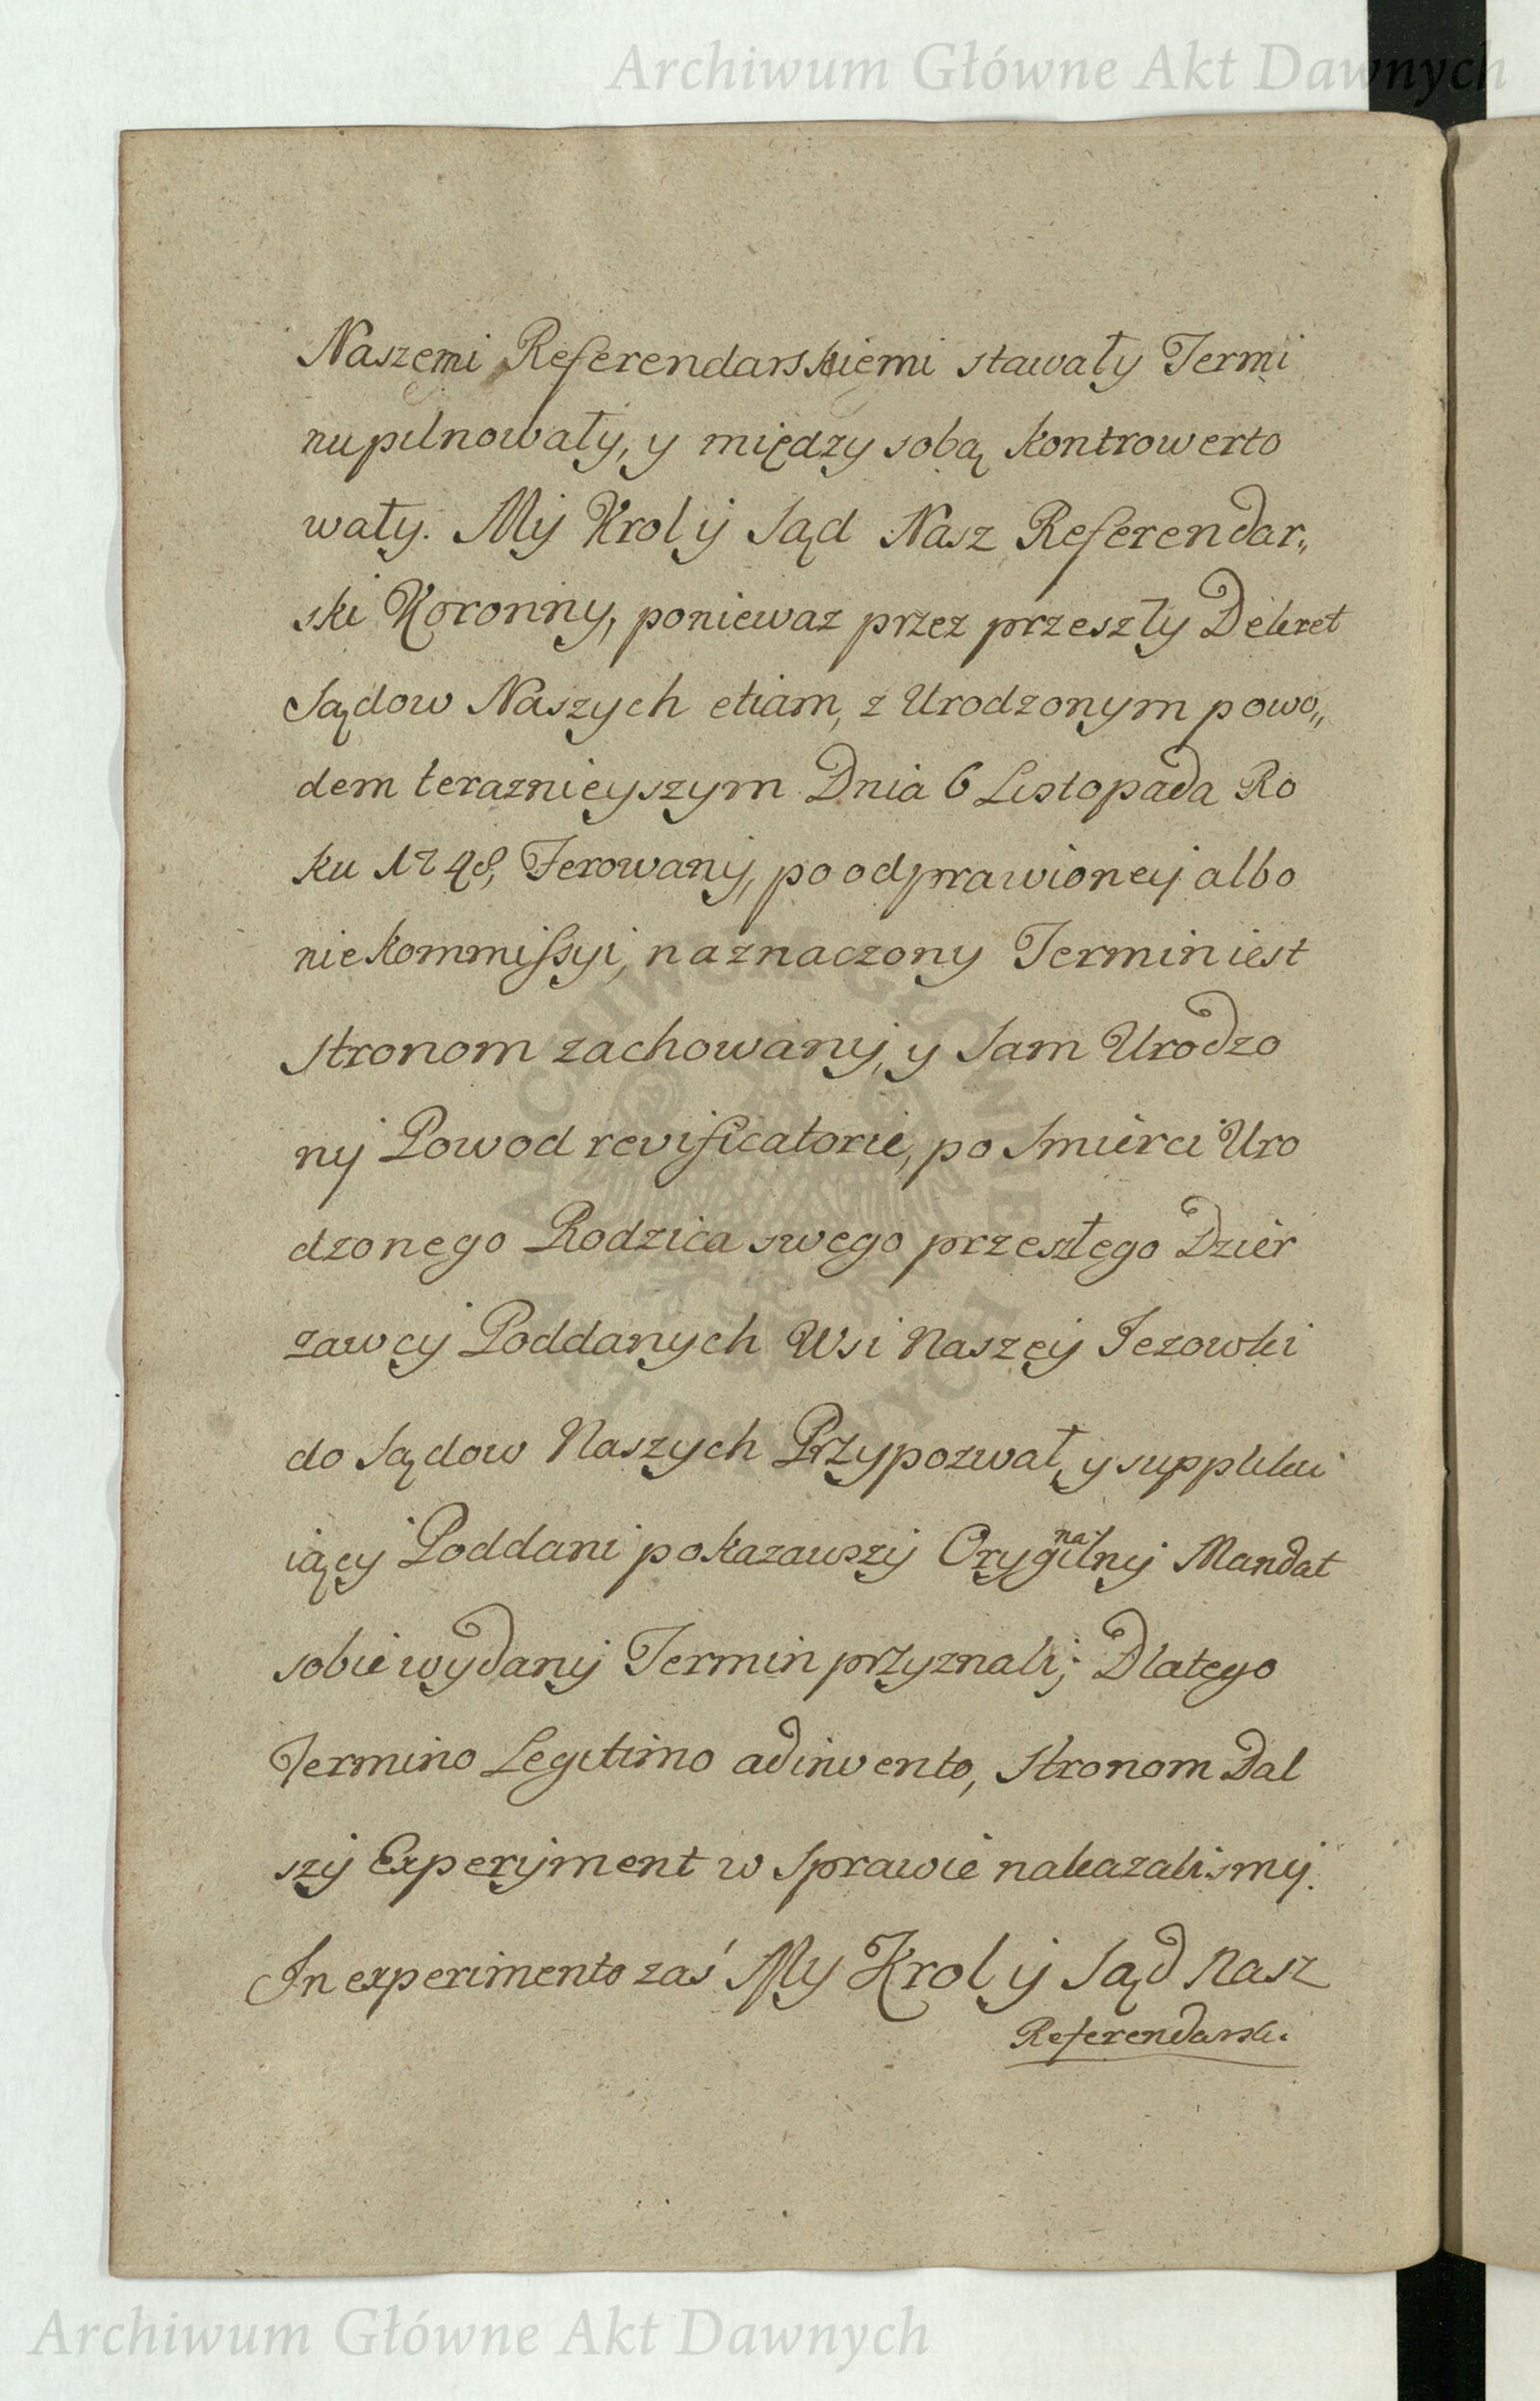 Archiwum Główne Akt Dawnych
Naszemi Referendarskiemi stawały Termi
nu pilnowały, y między sobą kontrowerto
wały. My Krol y Sąd Nasz Referendar„
ski Koronny, poniewaz przez przeszły Dekret
Sądow Naszych etiam, z Urodzonym powo„
dem teraznieyszym Dnia 6 Listopada Ro
ku 1748, Ferowany, po odprawioney albo
nie kommissyi, naznaczony Termin iest
stronom zachowany, y Sam Urodzo
ny Powod revisicatorie, po Smierci Uro
dzonego Rodzica swego przeszłego Dzier
zawcy Poddanych Wsi Naszey Jezowki
do Sądow Naszych Przypozwał, y supplikui
iący Poddani pokazawszy Oryginalny Mandat
sobie wydany Termin przyznali; Dlatego
Termino Legitimo adinvento, Stronom Dal
szy Experyment w Sprawie nakazalismy.
In experimento zaś My Krol y Sąd Nasz
Referendarski
Archiwum Główne Akt Dawnych